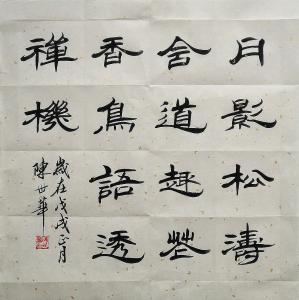 月影松濤
含道趣花
香鳥語透
禪機
歲在戊戌正月
陳世華